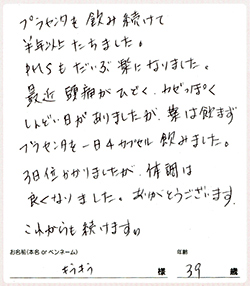 プラセンタを飲み続けて
半年以上たちました。
PMSもだいぶ楽になりました。
最近頭痛がひどく、かぜっぽく
しんどい日がありましたが、薬は飲まず
プラセンタを一日4カプセル飲みました。
3日位かかりましたが、体調は
良くなりました。ありがとうございます。
これからも続けます。
お名前(本名 or ペンネーム) 年齢
ぎうぎう 様 39 歳